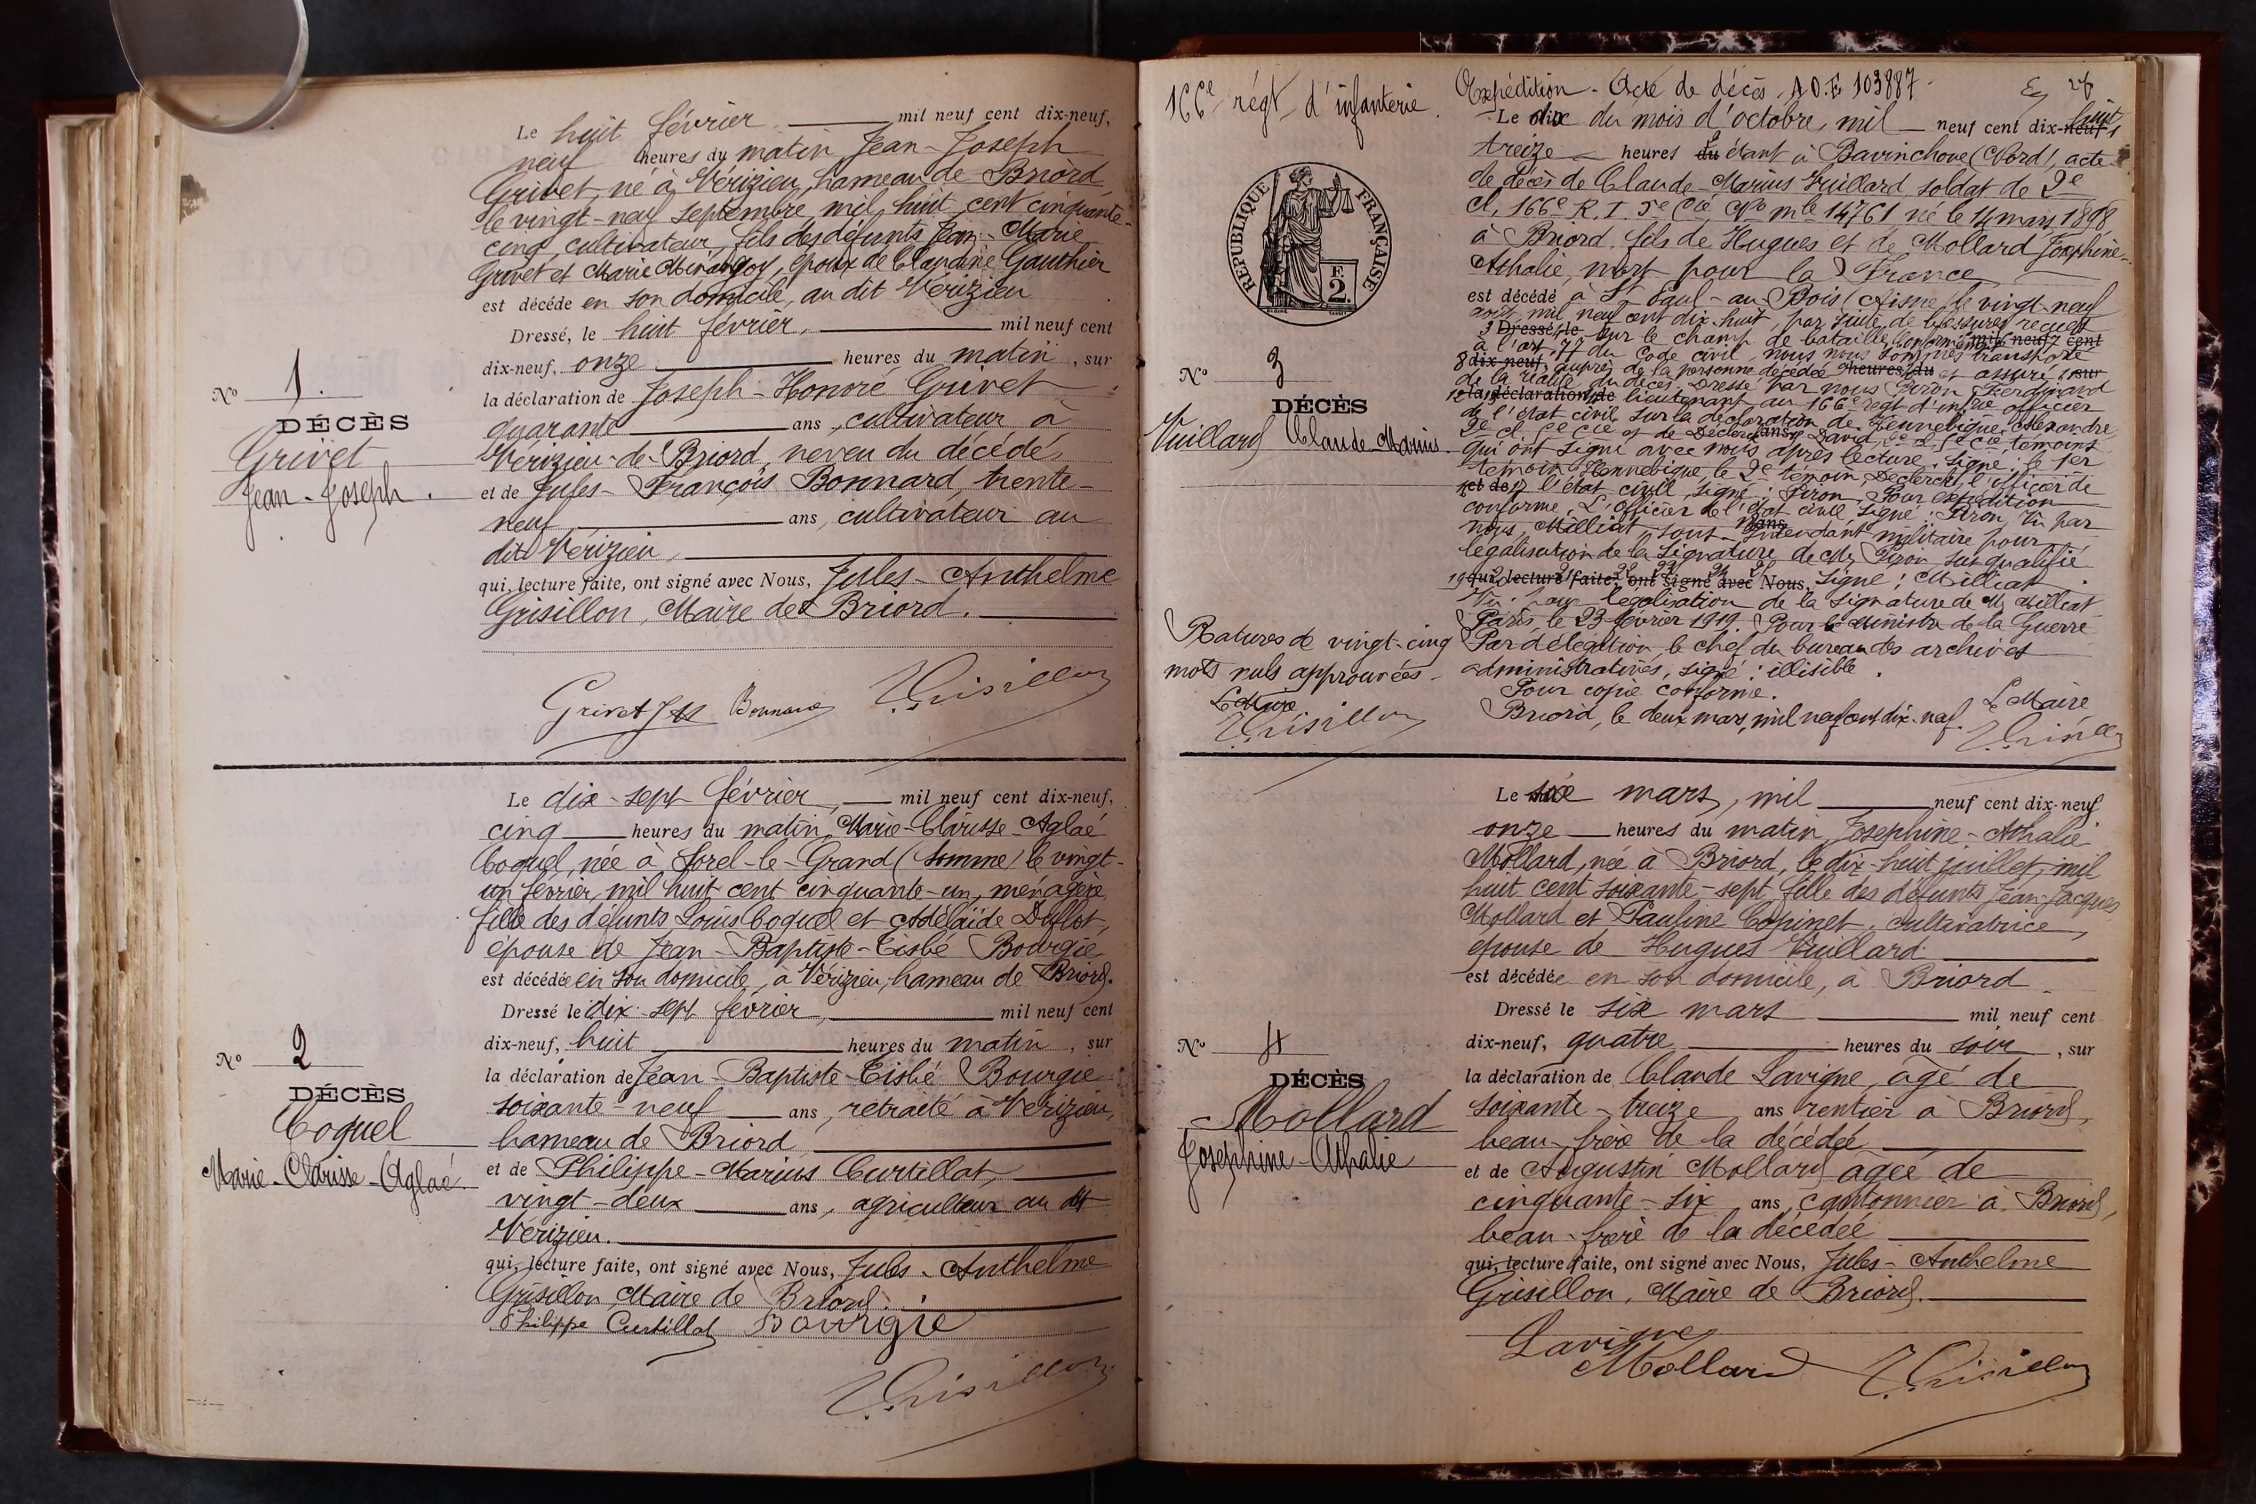 Le huit février mil neuf cent dix-neuf,
neuf heures du matin Jean-Joseph
Grivet, né à Vérizieu, hameau de Briord,
le vingt-neuf septembre mil huit cent cinquante-
cinq cultivateur, fils des défunts Jean-Marie
Grivet et Marie époux de Claudine Gauthier
est décédé en son domicile, au dit Vérizieu
Dressé, le huit février, mil neuf cent
dix-neuf, onze heures du matin, sur
la déclaration de Joseph-Honoré Grivet
quarante ans, cultivateur à
Vérizieu-de-Briord, neveu du décédé
et de Jules-François Bonnard, trente-
neuf ans, cultivateur au
dit Vérizieu,
qui, lecture faite, ont signé avec Nous, Jules-Anthelme
Grisillon, Maire de Briord.
Grivet Bonnard Grisillon
No 1.
DÉCÈS
Grivet
Jean-Joseph.
Le dix-sept février, mil neuf cent dix-neuf,
cinq heures du matin, Marie-Clarisse-Aglaé
Coquel, née à Sorel-le-Grand (Somme) le vingt-
un février, mil huit cent cinquante-un, ménagère
fille des défunts Louis Coquel et Adélaïde Duflot,
épouse de Jean-Baptiste-Tisbé Bourgie
est décédée en son domicile, à Vérizieu, hameau de Briord.
Dressé le dix-sept février, mil neuf cent
dix-neuf, huit heures du matin, sur
la déclaration de Jean-Baptiste-Tisbé Bourgie
soixante-neuf ans, retraité à Vérizieu,
hameau de Briord
et de Philippe-Marius Curtillat,
vingt-deux ans, agriculteur au dit
Vérizieu.
qui, lecture faite, ont signé avec Nous, Jules-Anthelme
Grisillon, Maire de Briord.
Philippe Curtillat Bourgie
Grisillon
No 2
DÉCÈS
Coquel
Marie-Clarisse-Aglaé
166e régt d'infanterie.
RÉPUBLIQUE FRANÇAISE
E
2.
No 3
DÉCÈS
Vuillard Claude-Marius.
Ratures de vingt-cinq
mots nuls approuvées-
Le Maire
Grisillon
Expédition-Acte de décès. A O.E 103887
Le dix du mois d'octobre, mil neuf cent dix-neuf huit,
treize heures du étant à Bavinchove (Nord), acte
de décès de Claude-Marius Vuillard, soldat de 2e
cl, 166e R.I. Cie No mle 14761 né le 14 mars 1898
à Briord, fils de Hugues et de Mollard Joséphine-
Athalie, mort pour la France
est décédé à St Paul-au-Bois (Aisne) le vingt-neuf
août, mil neuf cent dix-huit, par suite de blessures reçues
3 Dressé, le sur le champ de bataille, conformément mil neuf cent
à l'art. 77 du Code civil, nous nous sommes transporté
8 dix-neuf, auprès de la personne décédée heures du et assuré sur
de la réalité du décès. Dressé par nous Piron Ferdinand
la déclaration de lieutenant au 166e régt d'infrie officier
de l'état civil sur la déclaration de Hennebique Alexandre
2e cl. Cie et de ans David, 2e cl Cie témoins
qui ont signé avec nous après lecture. Signé: le 1er
témoin Hennebique, le 2e témoin, l'officier de
et de l'état civil, signé: Piron. Pour expédition
conforme. L'officier de l'état civil, signé: Piron, Vu par
nous, Milliat, sous-intendant militaire pour
ans
légalisation de la signature de M. Piron susqualifié
19 qui, lecture faite, ont signé avec Nous, signé: Milliat
Vu pour légalisation de la signature de M. Milliat
Paris le 23 février 1919 Pour le Ministre de la Guerre
Par délégation, le chef du bureau des archives
administratives, signé: illisible.
Pour copie conforme.
Briord, le deux mars, mil neuf cent dix-neuf. Le Maire
Grisillon
Le six mars, mil neuf cent dix-neuf
onze heures du matin, Joséphine-Athalie
Mollard, née à Briord, le dix-huit juillet, mil
huit cent soixante-sept, fille des défunts Jean-Jacques
Mollard et Pauline Copinet, cultivatrice,
épouse de Hugues Vuillard
est décédée en son domicile, à Briord
Dressé le six mars mil neuf cent
dix-neuf, quatre heures du soir, sur
la déclaration de Claude Lavigne, âgé de
soixante-treize ans rentier à Briord,
beau-frère de la décédée
et de Augustin Mollard âgée de
cinquante-six ans, cantonnier à Briord,
beau-frère de la décédée
qui, lecture faite, ont signé avec Nous, Jules-Anthelme
Grisillon, Maire de Briord.
Lavigne
Mollard Grisillon
No 4
DÉCÈS
Mollard
Joséphine-Athalie